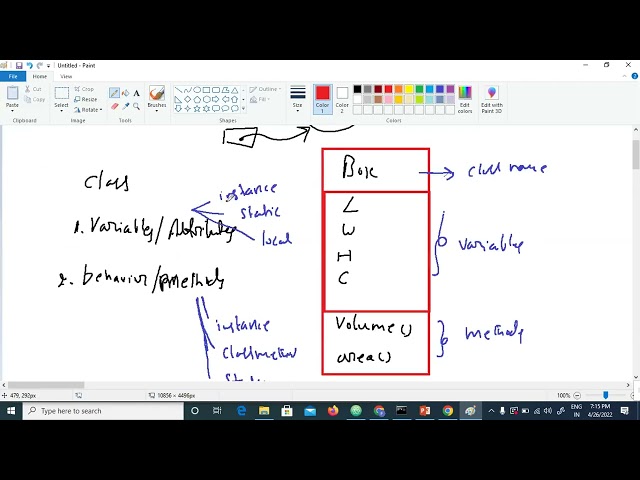 Untitled - Paint
File
Home
View
Paste
Cut
Copy
Clipboard
Select
Crop
Resize
Rotate
Image
Tools
Brushes
Shapes
Outline
Fill
Size
Color 1
Color 2
Colors
Edit colors
Edit with Paint 3D
Box
class name
class
instance
static
local
1. Variables/Attributes
L
W
H
C
variables
2. behavior/methods
instance
class method
volume()
area()
methods
479, 292px
10856 × 4496px
100%
Type here to search
ENG
IN
7:15 PM
4/26/2022